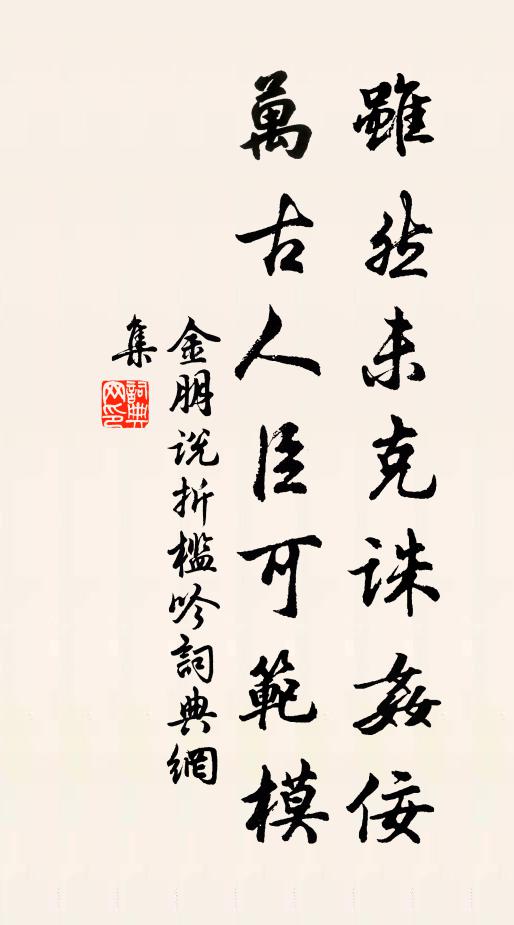 雖然未克誅姦佞
萬古人臣可範模
金朋說折檻吟詞典網
集
詞典網印